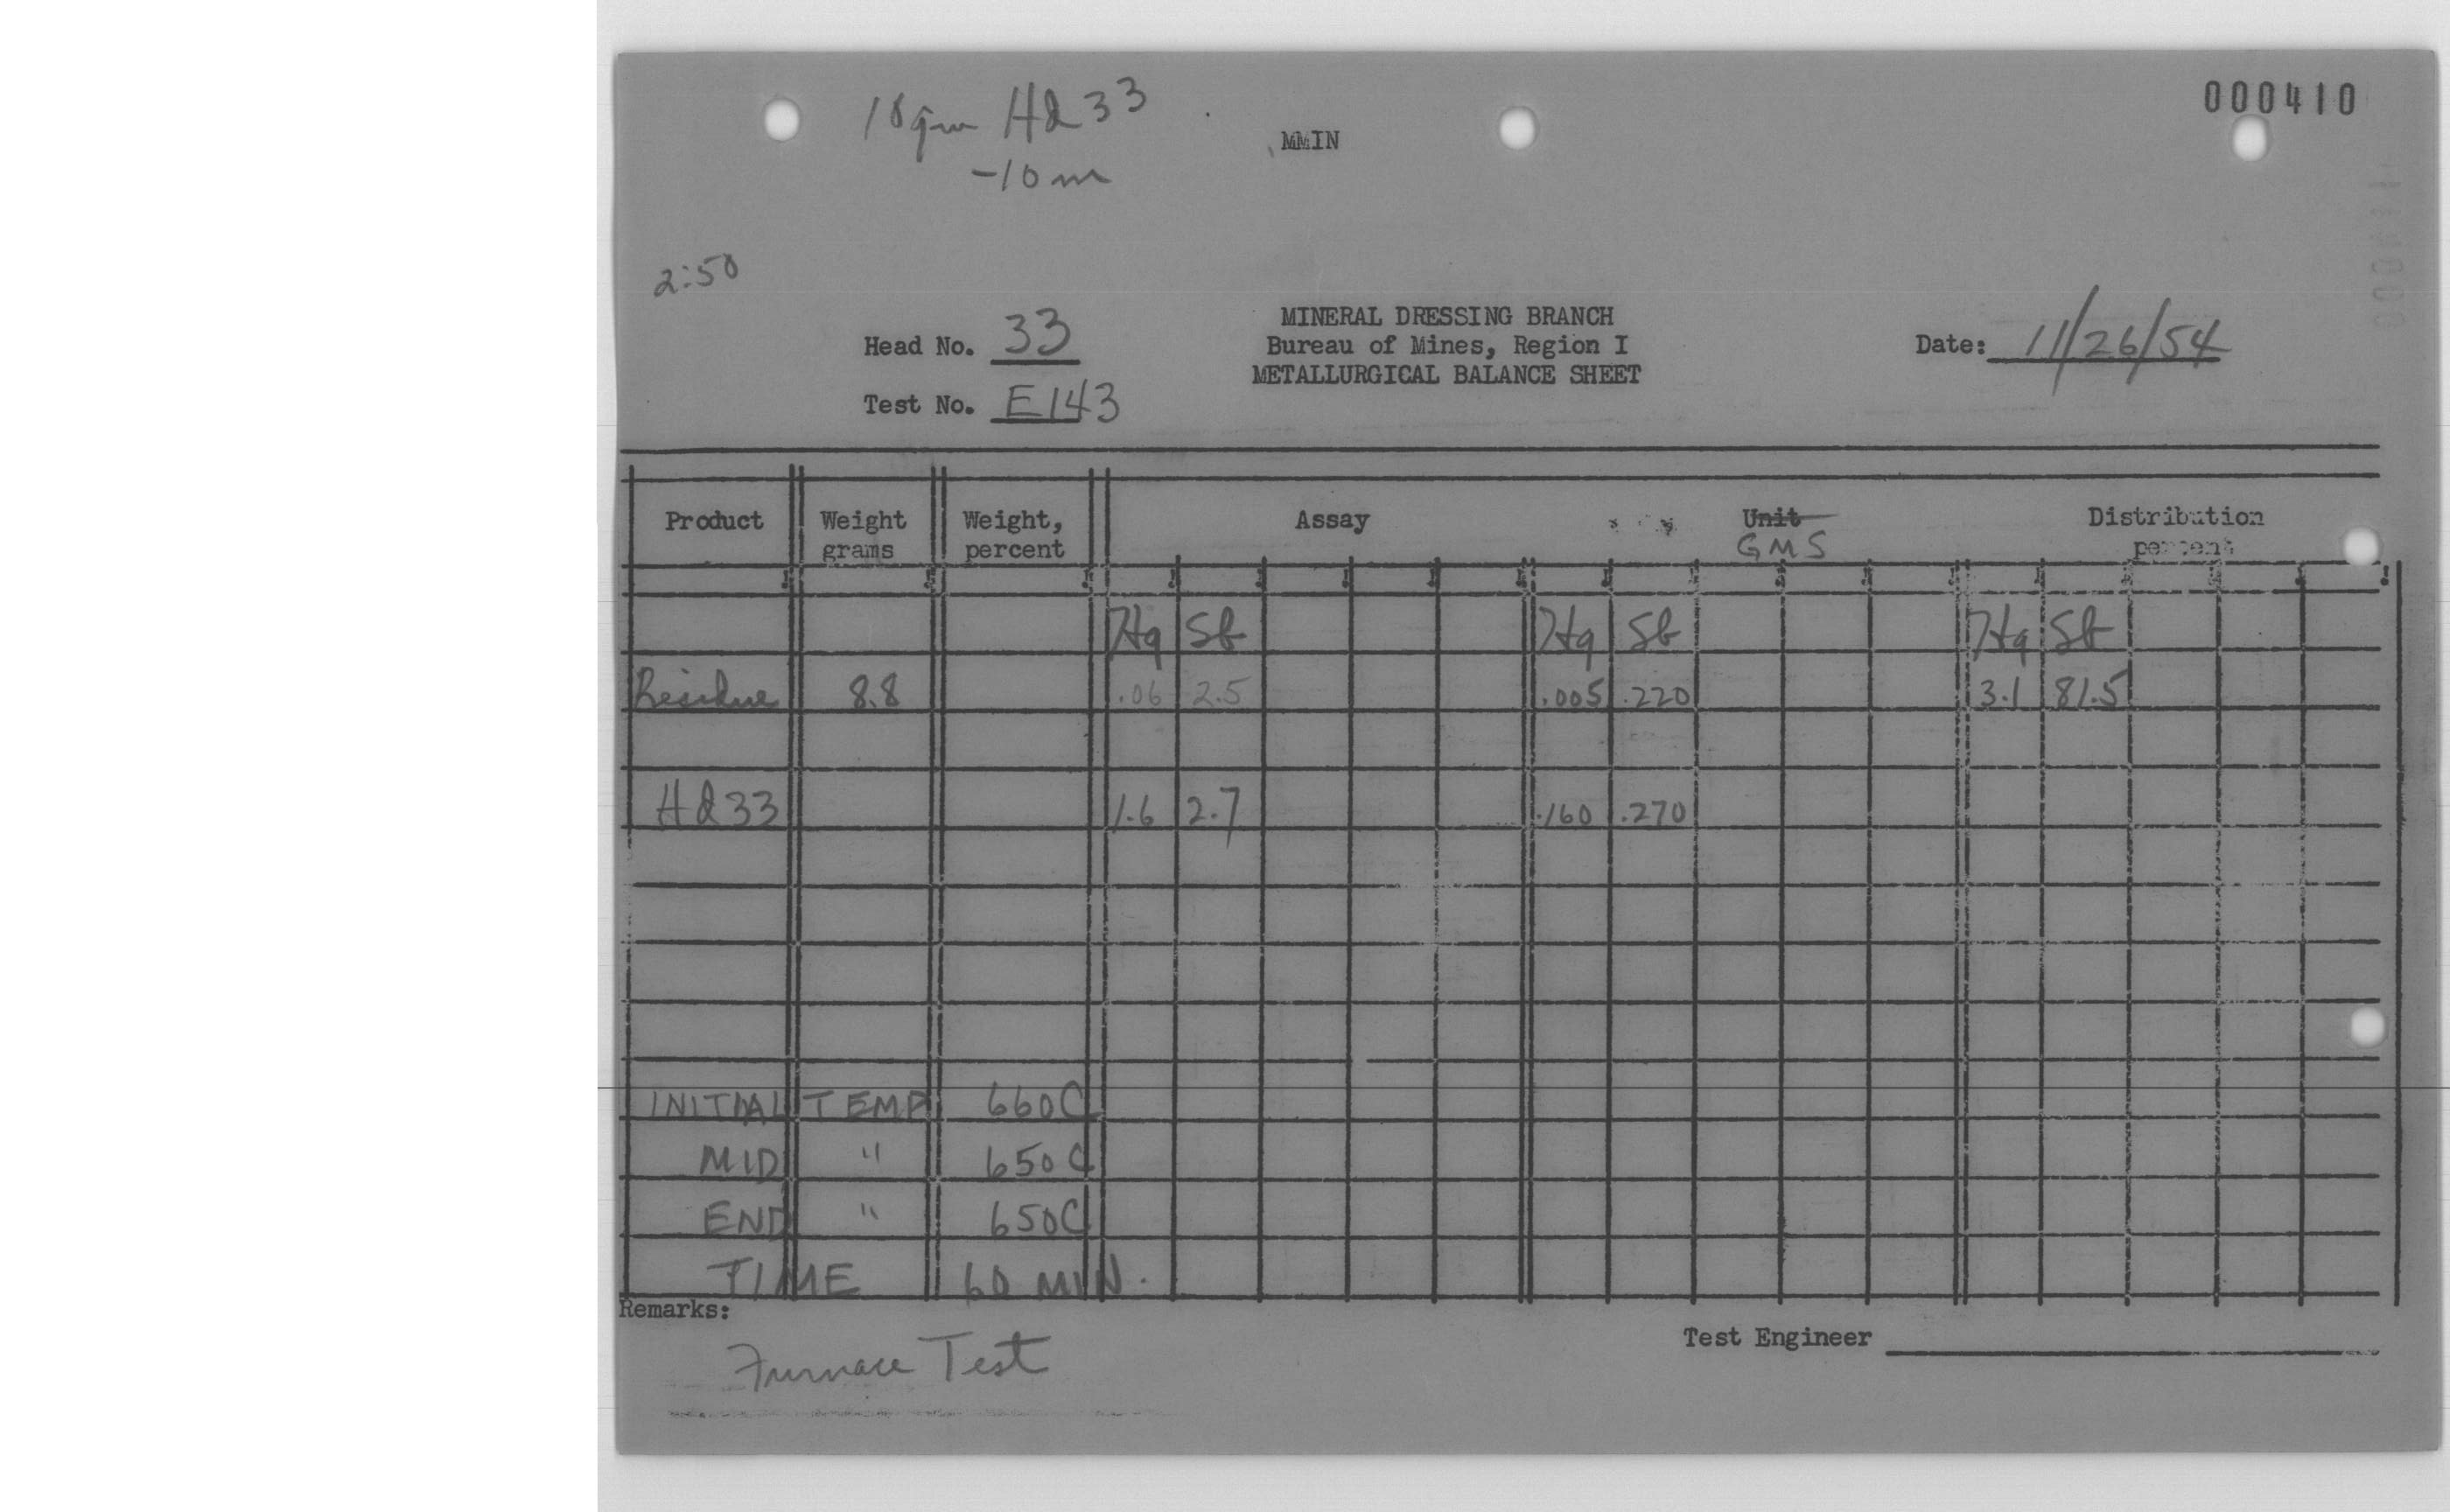 000410
10 gm Hd 33
MMIN
-10 m
2:50
MINERAL DRESSING BRANCH
Head No. 33 Bureau of Mines, Region I Date: 11/26/54
METALLURGICAL BALANCE SHEET
Test No. E143
Product Weight grams Weight, percent Assay Unit GMS Distribution percent
Hg Sb Hg Sb Hg Sb
Residue 8.8 .06 2.5 .005 .220 3.1 81.5
Hd 33 1.6 2.7 .160 .270
INITIAL TEMP 660C
MID " 650C
END " 650C
TIME 60 MIN.
Remarks:
Test Engineer
Furnace Test